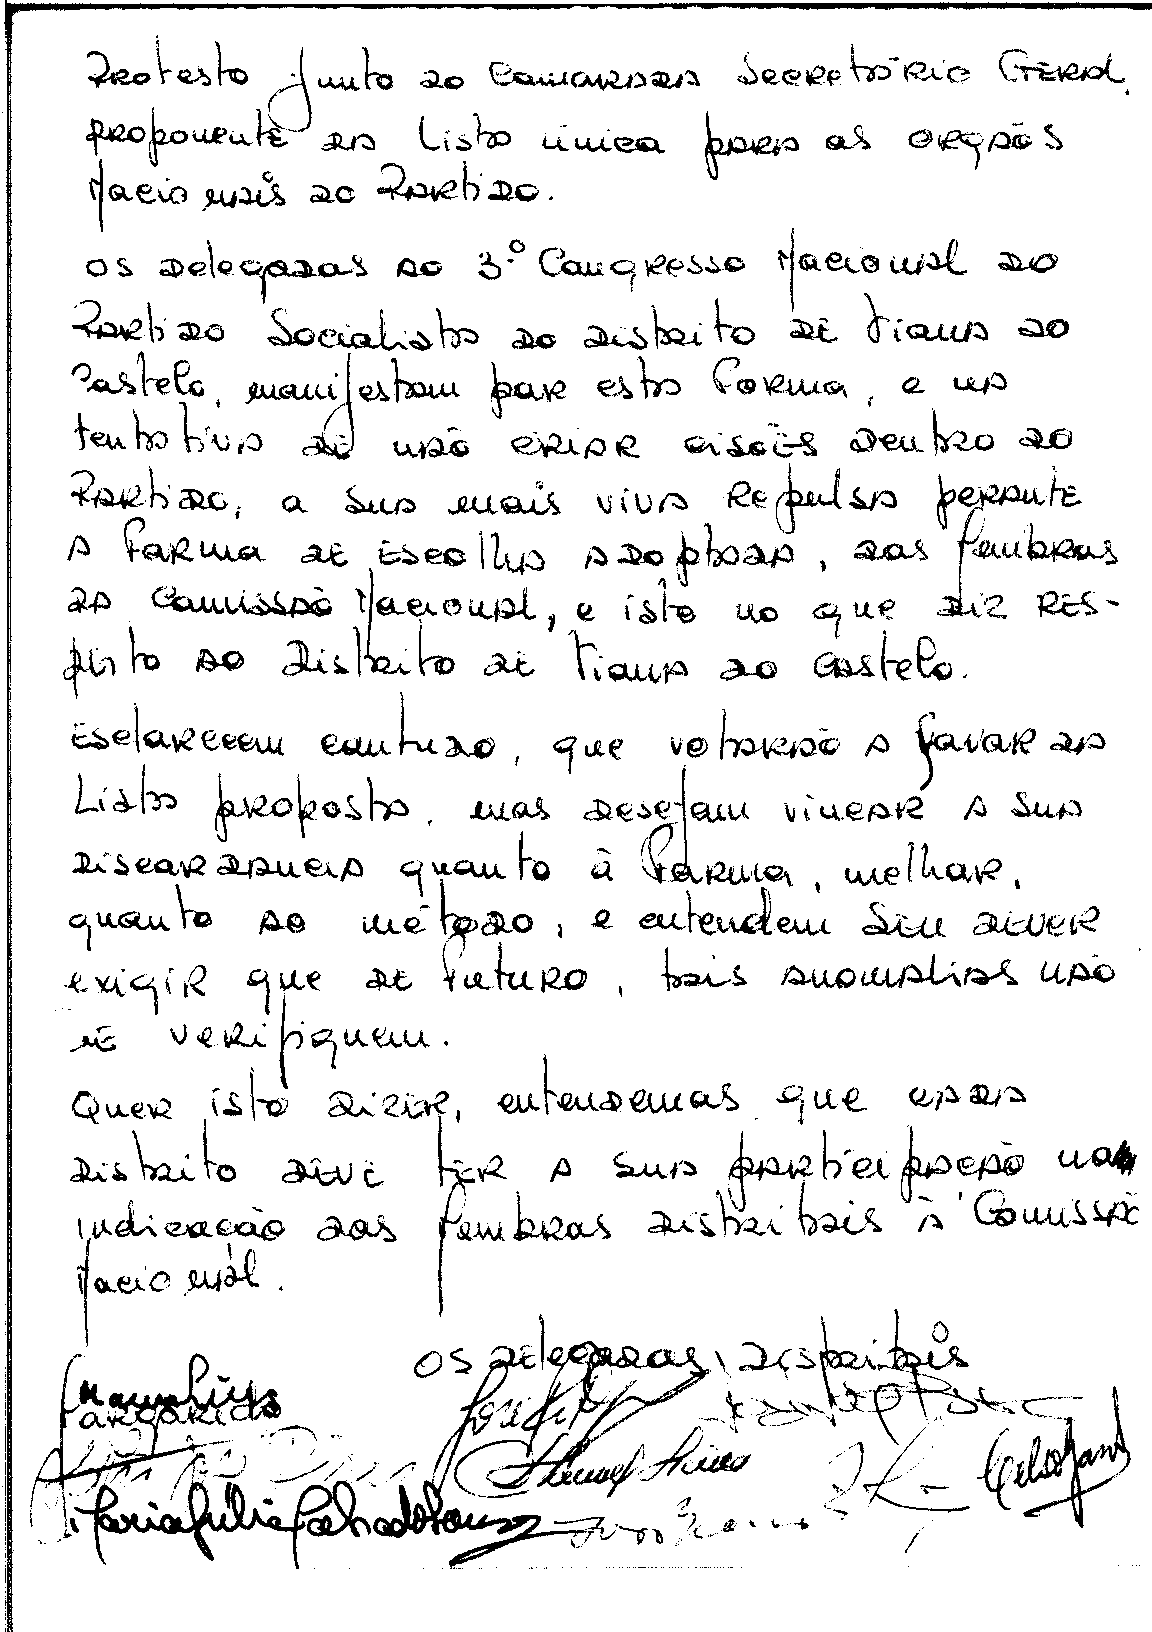 Protesto junto ao Camarada Secretário Geral,
proponente da Lista única para os orgãos
Nacionais do Partido.
Os delegados ao 3.º Congresso Nacional do
Partido Socialista do distrito de Viana do
Castelo, manifestam por esta forma, e na
tentativa de não criar cisões dentro do
Partido, a sua mais viva repulsa perante
a forma de escolha adoptada, dos membros
da Comissão Nacional, e isto no que diz res-
peito ao distrito de Viana do Castelo.
Esclarecem contudo, que votarão a favor da
Lista proposta, mas desejam vincar a sua
discordancia quanto à forma, melhor,
quanto ao método, e entendem seu dever
exigir que de futuro, tais anomalias não
se verifiquem.
Quer isto dizer, entendemos que cada
distrito deve ter a sua participação na
indicação dos membros distritais à Comissão
Nacional.
Os delegados distritais
Margarida
Maria Júlia